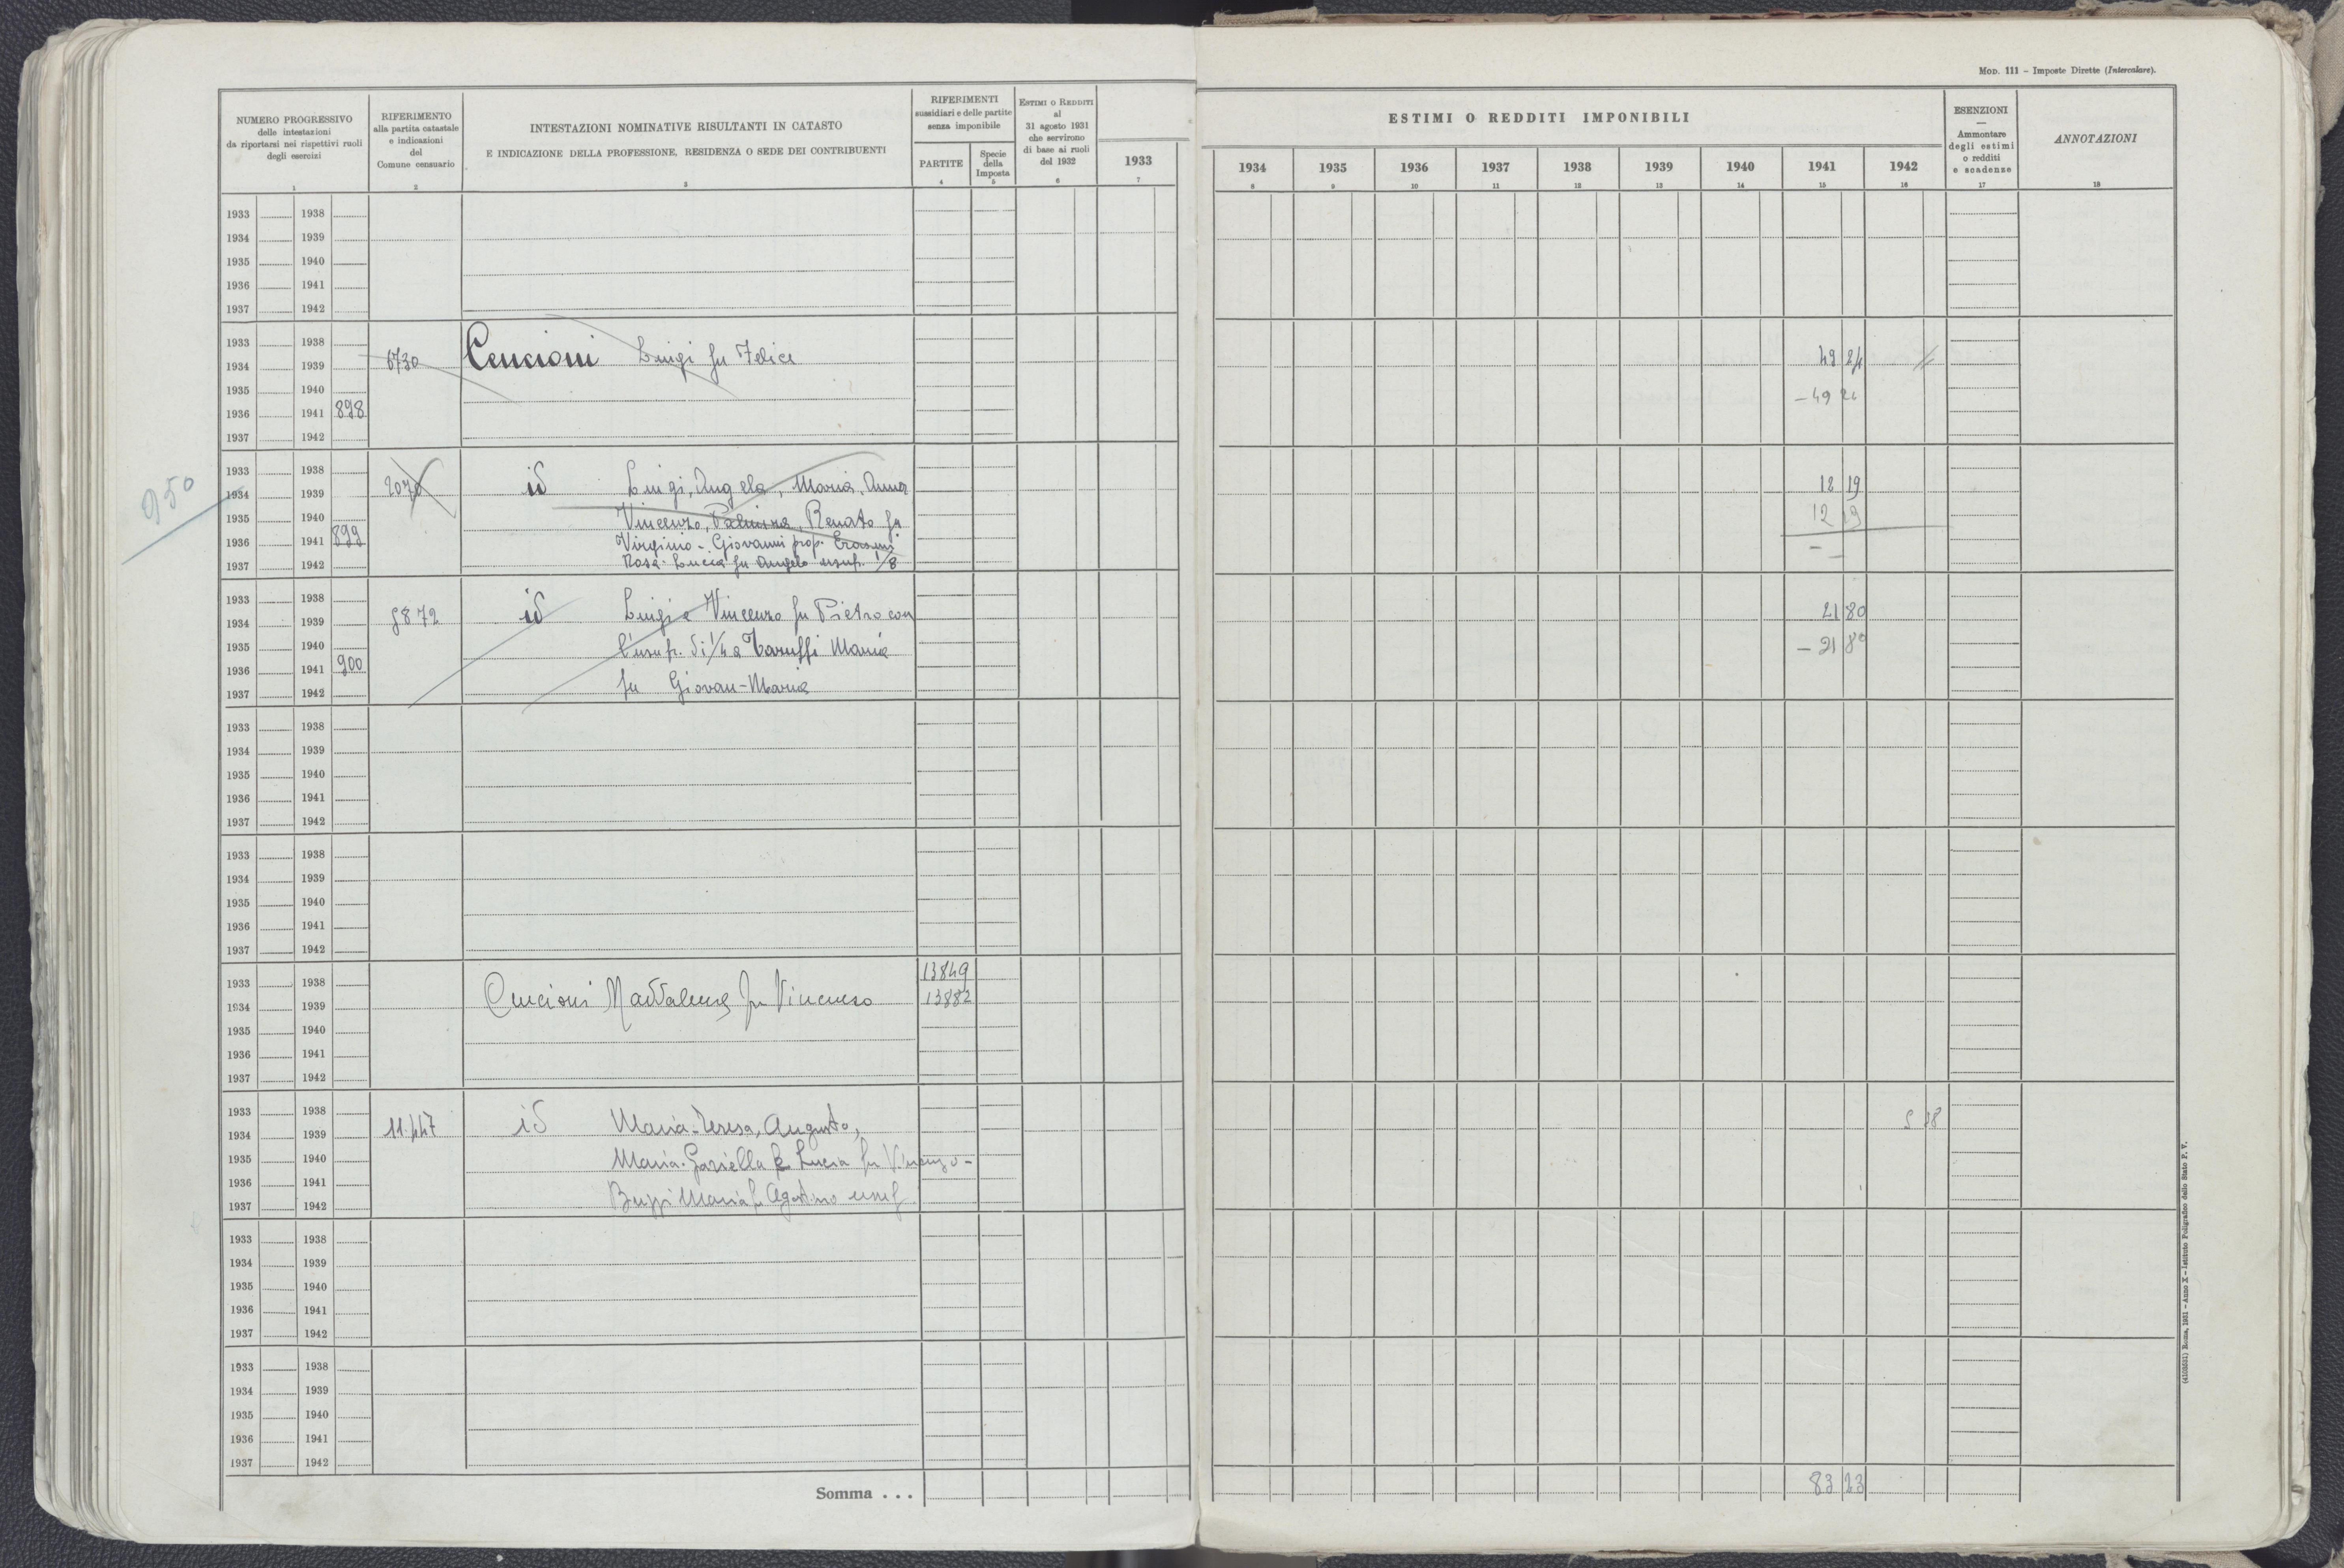 MOD. 111 – Imposte Dirette (Intercalare).
NUMERO PROGRESSIVO
delle intestazioni
da riportarsi nei rispettivi ruoli
degli esercizi
1
RIFERIMENTO
alla partita catastale
e indicazioni
del
Comune censuario
2
INTESTAZIONI NOMINATIVE RISULTANTI IN CATASTO
E INDICAZIONE DELLA PROFESSIONE, RESIDENZA O SEDE DEI CONTRIBUENTI
3
RIFERIMENTI
sussidiari e delle partite
senza imponibile
PARTITE
4
Specie
della
Imposta
5
ESTIMI O REDDITI
al
31 agosto 1931
che servirono
di base ai ruoli
del 1932
6
ESTIMI O REDDITI IMPONIBILI
1933 1934 1935 1936 1937 1938 1939 1940 1941 1942
7 8 9 10 11 12 13 14 15 16
ESENZIONI
—
Ammontare
degli estimi
o redditi
e scadenze
17
ANNOTAZIONI
18
1933 1938
1934 1939
1935 1940
1936 1941
1937 1942
1933 1938
1934 1939 6730 Cencioni Luigi fu Felice 49 24
1935 1940 – 49 24
1936 1941 898
1937 1942
950
1933 1938
1934 1939 2070 id Luigi, Angela, Maria, Anna 12 19
1935 1940 Vincenzo, Palmira, Renato fu 12 19
1936 1941 899 Virginio - Giovanni prop. Erasmi –
1937 1942 Rosa-Lucia fu Angelo usuf. 1/8
1933 1938
1934 1939 9872 id Luigi e Vincenzo fu Pietro con 21 80
1935 1940 l'usuf. di 1/4 a Taruffi Maria – 21 80
1936 1941 900
1937 1942 fu Giovan-Maria
1933 1938
1934 1939
1935 1940
1936 1941
1937 1942
1933 1938
1934 1939
1935 1940
1936 1941
1937 1942
1933 1938 13849
1934 1939 Cencioni Maddalena fu Vincenzo 13882
1935 1940
1936 1941
1937 1942
1933 1938
1934 1939 11447 id Maria-Teresa, Augusto,
1935 1940 Maria-Graziella e Lucia fu Vincenzo -
1936 1941
1937 1942 Maria fu Agostino usuf
1933 1938
1934 1939
1935 1940
1936 1941
1937 1942
1933 1938
1934 1939
1935 1940
1936 1941
1937 1942
Somma . . . 83 23
(4103531) Roma, 1931 - Anno X - Istituto Poligrafico dello Stato P. V.